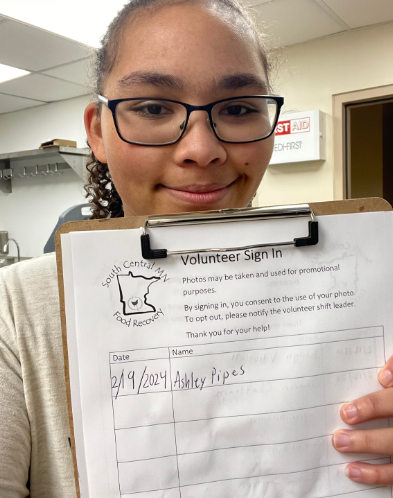 STAID
EDI-FIRST
Volunteer Sign In
South Central MN
Food Recovery
Photos may be taken and used for promotional
purposes.
By signing in, you consent to the use of your photo.
To opt out, please notify the volunteer shift leader.
Thank you for your help!
Date Name
2/19/2024 Ashley Pipes